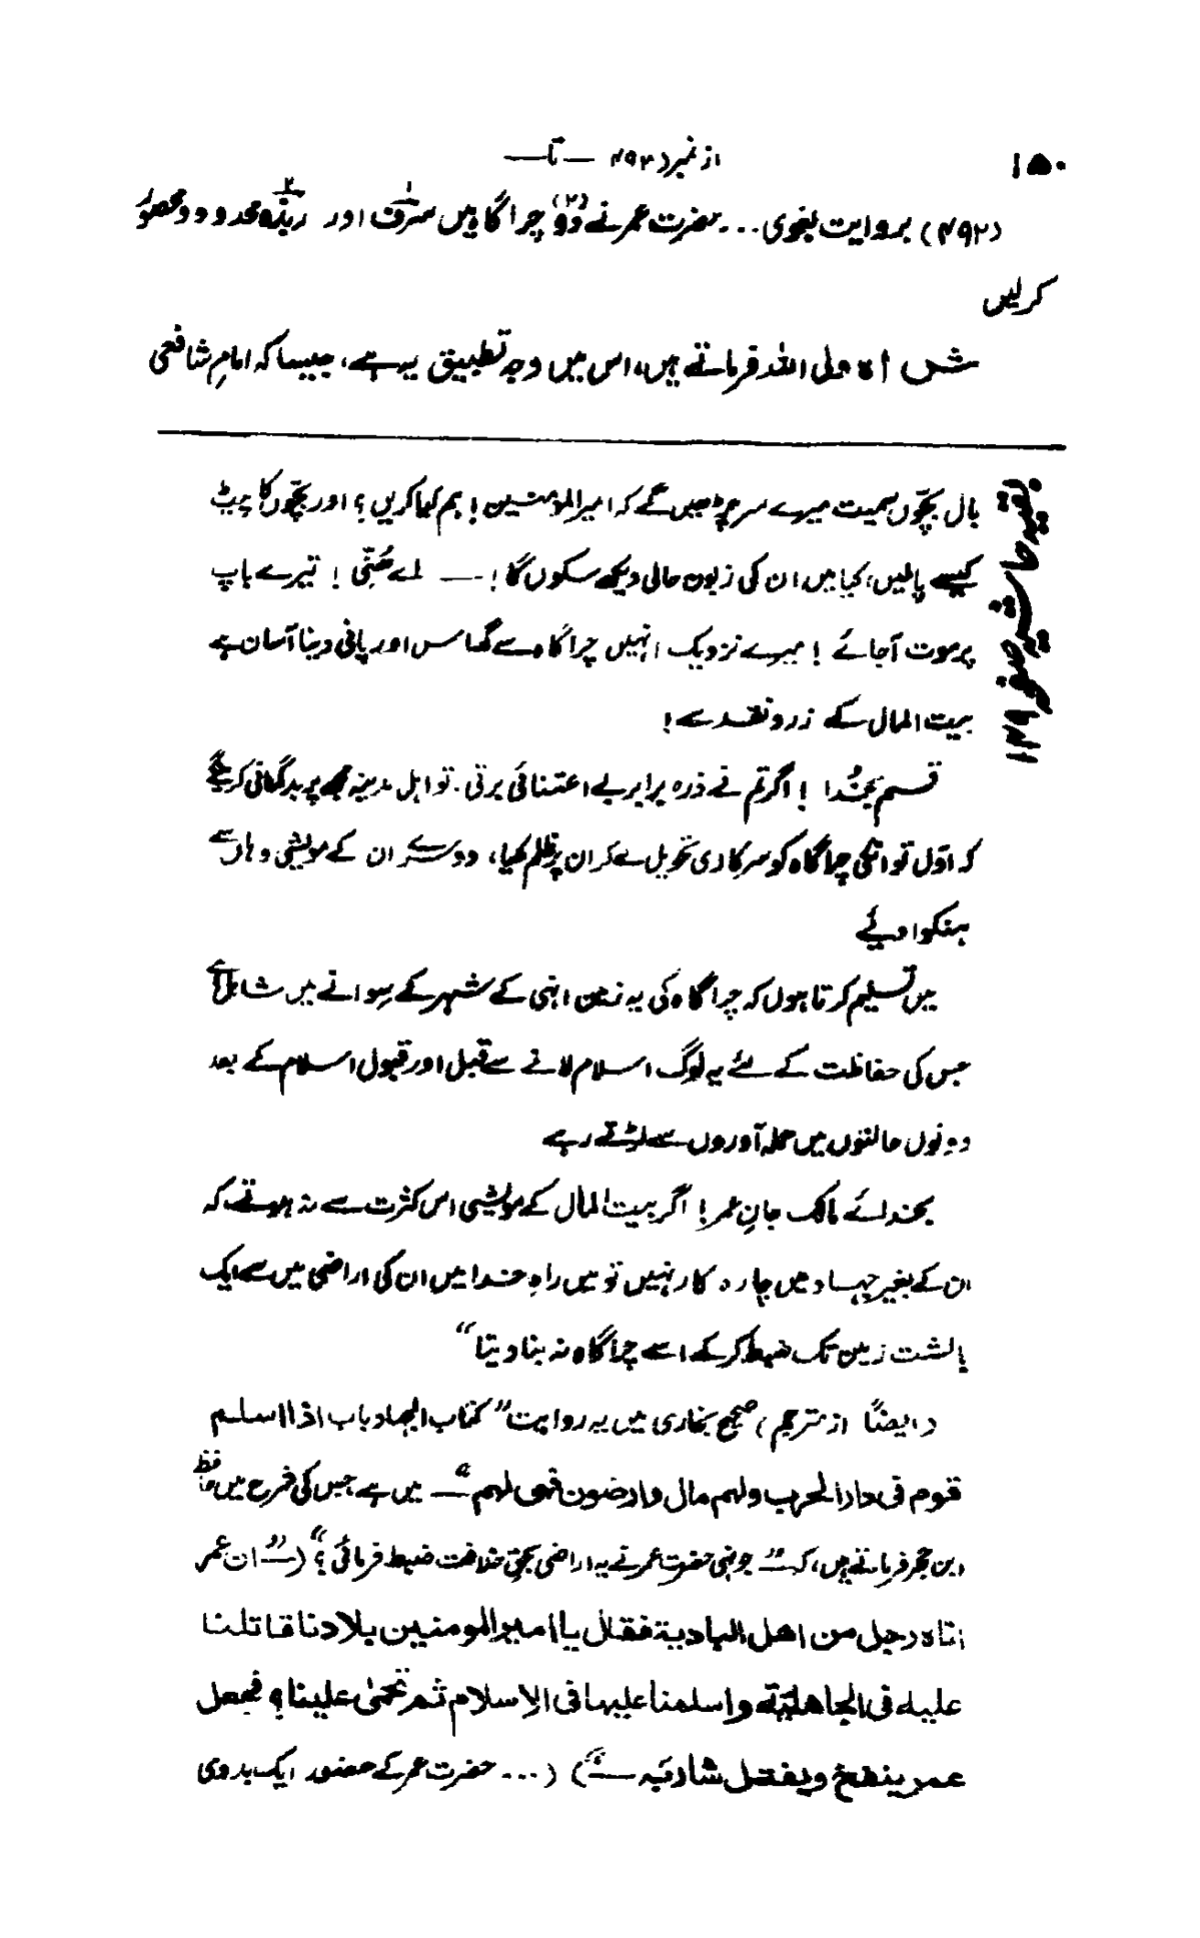 ۱۵۰
از نمبر (۴۹۲ — تا —
(۴۹۲) بروایت بغوی ... حضرت عمر نے دو (۲) چراگاہیں سَرَف۱ اور ربذہ۲ محدود و محصور
کرلیں
شاہ ولی اللہ فرماتے ہیں، اس میں وجہ تطبیق یہ ہے، جیسا کہ امام شافعی
بقیہ حاشیہ صفحہ ۱۴۹
بال بچّوں سمیت میرے سر چڑھیں گے کہ امیر المومنین! ہم کیا کریں؟ اور بچّوں کا پیٹ
کیسے پالیں، کیا میں ان کی زبون حالی دیکھ سکوں گا! — اے ھُنَیّ! تیرے باپ
پر موت آجائے! میرے نزدیک انہیں چراگاہ سے گھاس اور پانی دینا آسان ہے
بیت المال کے زر و نقد سے!
قسم بخُدا! اگر تم نے ذرہ برابر بے اعتنائی برتی۔ تو اہل مدینہ مجھ پر بدگمانی کرینگے
کہ اوّل تو انکی چراگاہ کو سرکاری تحویل لے کر ان پر ظلم کیا، دوسرے ان کے مویشی وہاں سے
ہنکوا دیئے
میں تسلیم کرتا ہوں کہ چراگاہ کی یہ زمین انہی کے شہر کے سِوانے میں شامل ہے
جس کی حفاظت کے لئے یہ لوگ اسلام لانے سے قبل اور قبول اسلام کے بعد
دونوں حالتوں میں حملہ آوروں سے لڑتے رہے
بخدائے مالک جانِ عمر! اگر بیت المال کے مویشی اس کثرت سے نہ ہوتے کہ
ان کے بغیر جہاد میں چارہ کار نہیں تو میں راہِ خدا میں ان کی اراضی میں سے ایک
بالشت زمین تک ضبط کر کے اسے چراگاہ نہ بنا دیتا“
(ایضًا از مترجم) صحیح بخاری میں یہ روایت ”کتاب الجہاد باب اذا اسلم
قوم فی دار الحرب ولہم مال وارضون فہی لہم“ — میں ہے جس کی شرح میں حافظ
ابن حجر فرماتے ہیں، کہ — ”جونہی حضرت عمر نے یہ اراضی بحقِ خلافت ضبط فرمائی؟“ (— ”ان عمر
اتاہ رجل من اھل البادیۃ فقال یا امیر المومنین بلادنا قاتلنا
علیہا فی الجاھلیّۃ واسلمنا علیہا فی الاسلام ثم تحمیٰ علینا؟ فجعل
عمر ینفخ ویفتل شاربہ —“) (... حضرت عمر کے حضور ایک بدوی